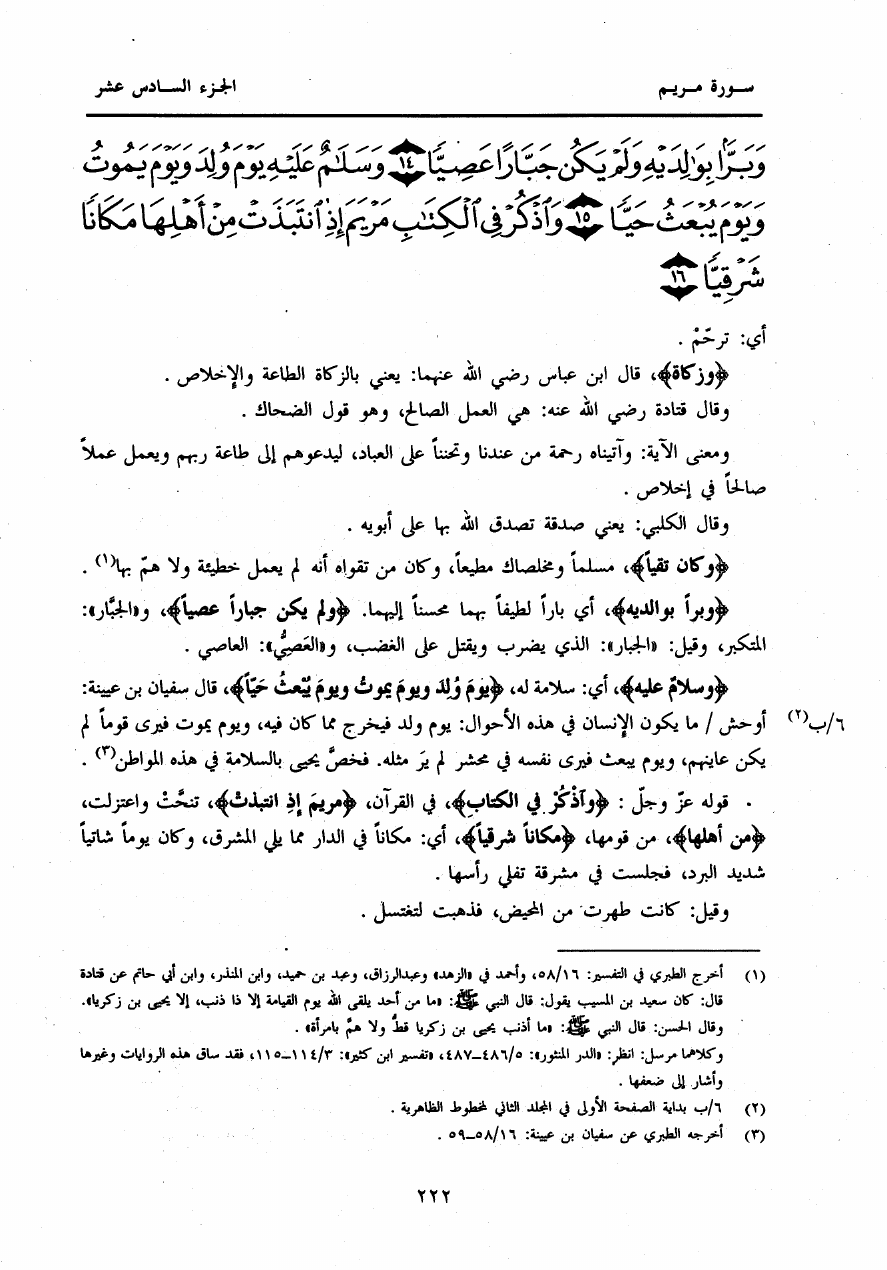 سـورة مـريـم
الجـزء السـادس عشر
وَبَرًّۢا بِوَٰلِدَيۡهِ وَلَمۡ يَكُن جَبَّارًا عَصِيّٗا ١٤ وَسَلَٰمٌ عَلَيۡهِ يَوۡمَ وُلِدَ وَيَوۡمَ يَمُوتُ
وَيَوۡمَ يُبۡعَثُ حَيّٗا ١٥ وَٱذۡكُرۡ فِي ٱلۡكِتَٰبِ مَرۡيَمَ إِذِ ٱنتَبَذَتۡ مِنۡ أَهۡلِهَا مَكَانٗا
شَرۡقِيّٗا ١٦
أي: ترحّمْ .
﴿وزكاة﴾، قال ابن عباس رضي الله عنهما: يعني بالزكاة الطاعة والإخلاص .
وقال قتادة رضي الله عنه: هي العمل الصالح، وهو قول الضحاك .
ومعنى الآية: وآتيناه رحمة من عندنا وتحنناً على العباد، ليدعوهم إلى طاعة ربهم ويعمل عملاً
صالحاً في إخلاص .
وقال الكلبي: يعني صدقة تصدق الله بها على أبويه .
﴿وكان تقياً﴾، مسلماً ومخلصاك مطيعاً، وكان من تقواه أنه لم يعمل خطيئة ولا همّ بها(١) .
﴿وبراً بوالديه﴾، أي باراً لطيفاً بهما محسناً إليهما. ﴿ولم يكن جباراً عصياً﴾، و«الجبَّار»:
المتكبر، وقيل: «الجبار»: الذي يضرب ويقتل على الغضب، و«العَصِيُّ»: العاصي .
﴿وسلامٌ عليه﴾، أي: سلامة له، ﴿يومَ وُلدَ ويومَ يموتُ ويومَ يُبْعثُ حَيّاً﴾، قال سفيان بن عيينة:
٦/ب(٢) أوحش / ما يكون الإنسان في هذه الأحوال: يوم ولد فيخرج مما كان فيه، ويوم يموت فيرى قوماً لم
يكن عاينهم، ويوم يبعث فيرى نفسه في محشر لم يَر مثله. فخصَّ يحيى بالسلامة في هذه المواطن(٣) .
قوله عزّ وجلّ : ﴿وآذْكُرْ في الكتابِ﴾، في القرآن، ﴿مريمَ إذِ انتبذتْ﴾، تنحَّتْ واعتزلت،
﴿من أهلها﴾، من قومها، ﴿مكاناً شرقياً﴾، أي: مكاناً في الدار مما يلي المشرق، وكان يوماً شاتياً
شديد البرد، فجلست في مشرقة تفلي رأسها .
وقيل: كانت طهرت من المحيض، فذهبت لتغتسل .
(١) أخرج الطبري في التفسير: ٥٨/١٦، وأحمد في «الزهد» وعبدالرزاق، وعبد بن حميد، وابن المنذر، وابن أبي حاتم عن قتادة
قال: كان سعيد بن المسيب يقول: قال النبي ﷺ: «ما من أحد يلقى الله يوم القيامة إلا ذا ذنب، إلا يحيى بن زكريا».
وقال الحسن: قال النبي ﷺ: «ما أذنب يحيى بن زكريا قطُّ ولا همَّ بامرأة» .
وكلاهما مرسل: انظر: «الدر المنثور»: ٤٨٦/٥–٤٨٧، «تفسير ابن كثير»: ١١٤/٣–١١٥، فقد ساق هذه الروايات وغيرها
وأشار إلى ضعفها .
(٢) ٦/ب بداية الصفحة الأولى في المجلد الثاني لمخطوط الظاهرية .
(٣) أخرجه الطبري عن سفيان بن عيينة: ٥٨/١٦–٥٩ .
٢٢٢